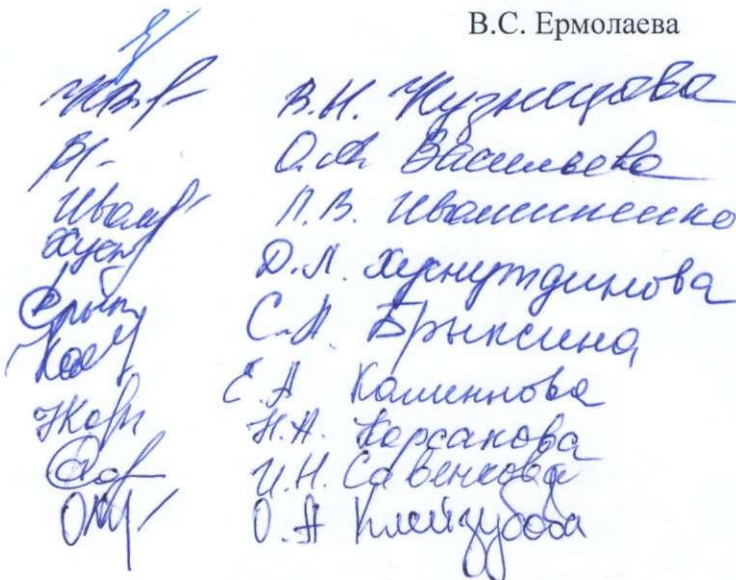 В.С. Ермолаева
В.Н. Кузнецова
О.А. Васильева
Л.В. Иваниненко
Д.Л. Хуснутдинова
С.А. Брыксина
Е.А Каменнова
Н.А. Корсакова
И.Н. Савенкова
О.А Клейзубова